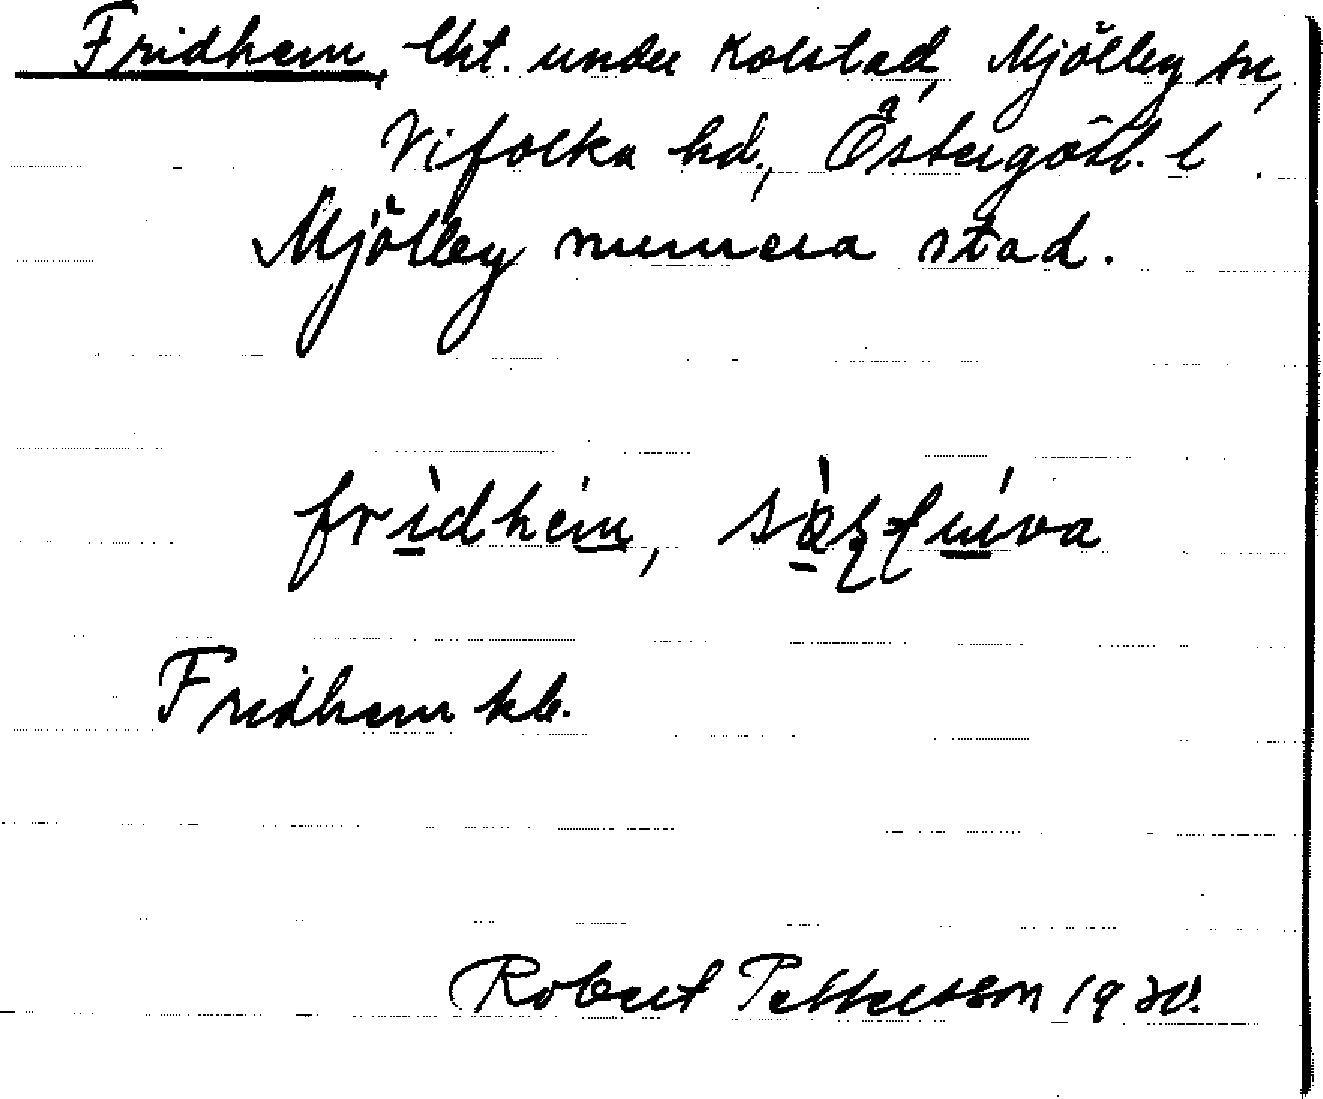 Fridhem, lht. under Kolstad, Mjölby sn,
Vifolka hd., Östergötl. l.
Mjölby numera stad.
fridhem,
Fridhem kb.
Robert Pettersson 1930.